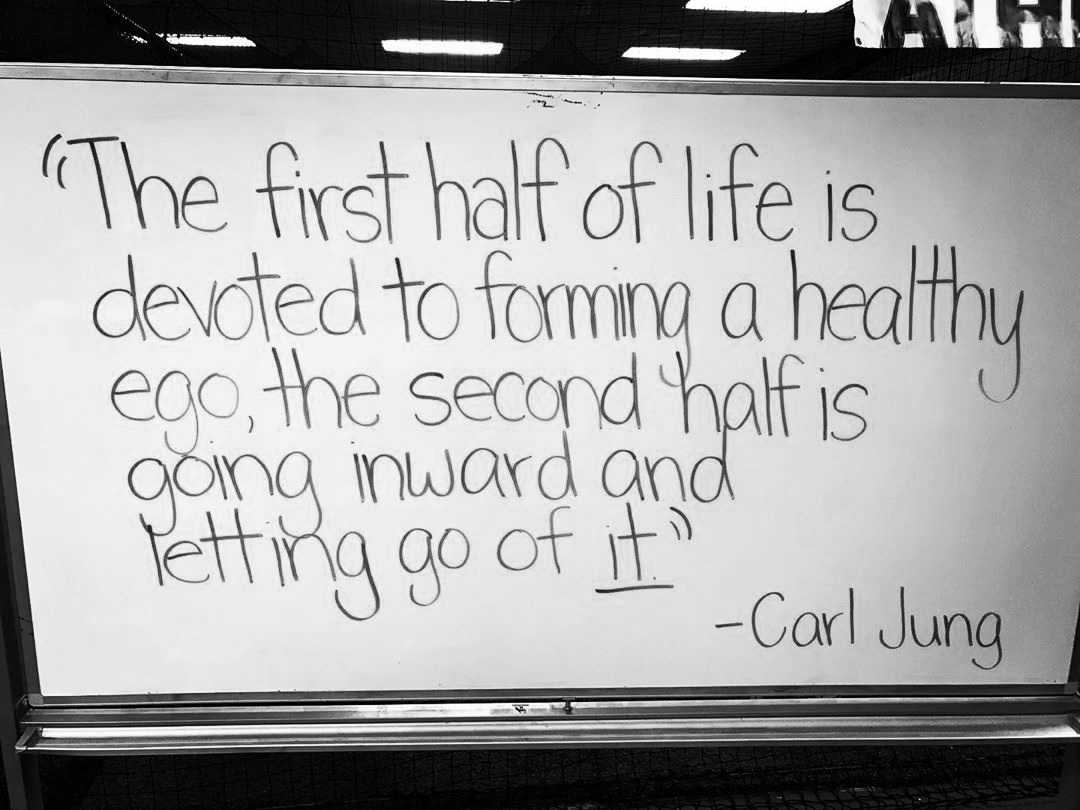 "The first half of life is
devoted to forming a healthy
ego, the second half is
going inward and
letting go of it."
-Carl Jung